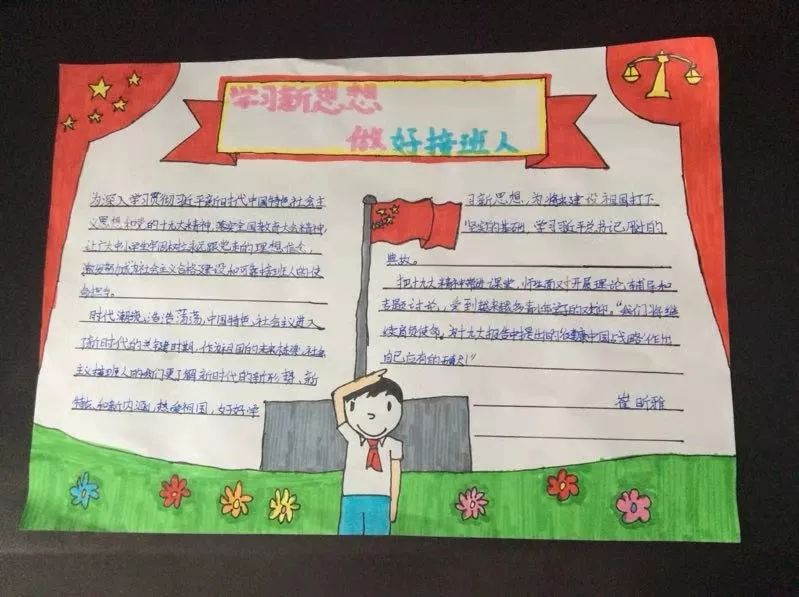 学习新思想
做好接班人
为深入学习贯彻习近平新时代中国特色社会主
义思想和党的十九大精神，落实全国教育大会精神，
让广大中小学生牢固树立永远跟党走的理想信念，
激发努力成为社会主义合格建设和可靠接班人的使
命担当。
时代潮境，浩浩荡荡，中国特色，社会主义进入
了新时代的关键时期，作为祖国的未来栋梁，社会
主义接班人的我们更了解新时代的新形势、新
特点和新内涵，热爱祖国，好好学
习新思想，为将来建设祖国打下
坚实的基础，学习习近平总书记用的
典故。
把十九大精神带进课堂，师生面对开展理论辅导和
专题讨论，受到越来越多青少年的欢迎。“我们将继
续肩负使命，为十九大报告中提出的健康中国战略作出
自己应有的贡献！”
崔昕雅